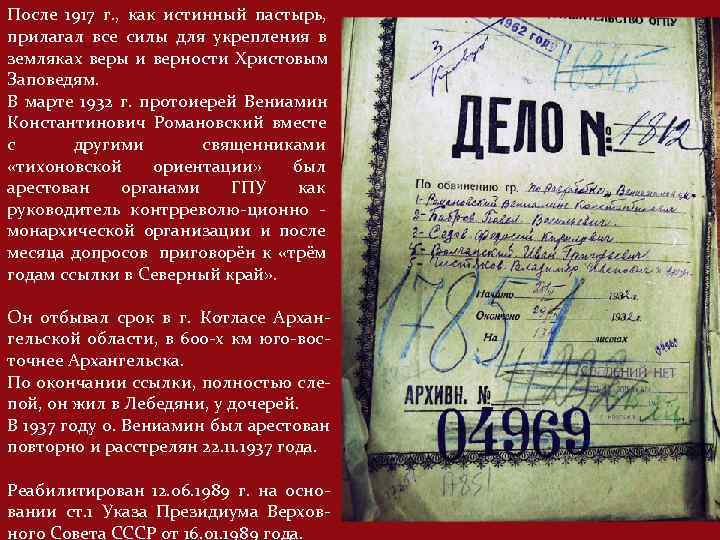 После 1917 г., как истинный пастырь,
прилагал все силы для укрепления в
земляках веры и верности Христовым
Заповедям.
В марте 1932 г. протоиерей Вениамин
Константинович Романовский вместе
с другими священниками
«тихоновской ориентации» был
арестован органами ГПУ как
руководитель контрреволю-ционно -
монархической организации и после
месяца допросов приговорён к «трём
годам ссылки в Северный край».
Он отбывал срок в г. Котласе Архан-
гельской области, в 600-х км юго-вос-
точнее Архангельска.
По окончании ссылки, полностью сле-
пой, он жил в Лебедяни, у дочерей.
В 1937 году о. Вениамин был арестован
повторно и расстрелян 22.11.1937 года.
Реабилитирован 12.06.1989 г. на осно-
вании ст.1 Указа Президиума Верхов-
ного Совета СССР от 16.01.1989 года.
ОГПУ
1962 ГОДУ
3
16345
ДЕЛО № 1812
По обвинению гр.
1- Романовский Вениамин Константинович
2- Павел Васильевич
3- Седов Кириллович
4- Иван Григорьевич
5- Владимир Иванович и другие
Начато 1932 г.
Окончено 1932 г.
На листах
17851
04969
СВЕДЕНИЙ НЕТ
АРХИВН. №
04969
1785